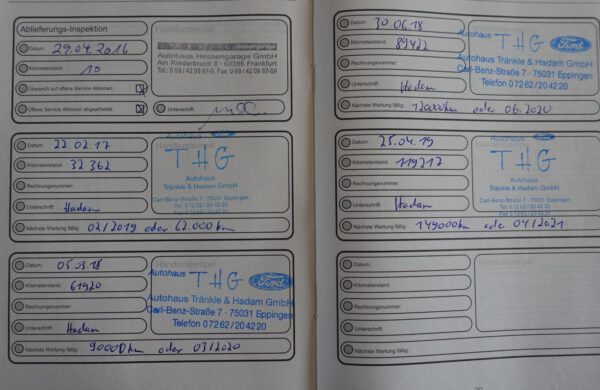 Ablieferungs-Inspektion
Händlerstempel
Datum: 29.04.2016
Kilometerstand: 10
Überprüft auf offene Service Aktionen:
Offene Service Aktionen abgearbeitet:
Autohaus Hessengarage GmbH
Am Riederbruch 8 - 60386 Frankfurt
Unterschrift:
Datum: 22.02.17
Kilometerstand: 32 362
Rechnungsnummer:
Unterschrift: Hadam
Nächste Wartung fällig: 02/2019 oder 62.000 km
Autohaus
THG
Autohaus
Tränkle & Hadam GmbH
Carl-Benz-Straße 7 - 75031 Eppingen
Tel. 0 72 62 / 20 42 20
Datum: 05.03.18
Kilometerstand: 61920
Rechnungsnummer:
Unterschrift: Hadam
Nächste Wartung fällig: 90000 km oder 03/2020
Händlerstempel
Autohaus THG Ford
Autohaus Tränkle & Hadam GmbH
Carl-Benz-Straße 7 - 75031 Eppingen
Telefon 0 72 62 / 20 42 20
Datum: 30.06.18
Kilometerstand: 89422
Rechnungsnummer:
Unterschrift: Hadam
Nächste Wartung fällig: 120000km oder 06.2020
Autohaus THG Ford
Autohaus Tränkle & Hadam GmbH
Carl-Benz-Straße 7 - 75031 Eppingen
Telefon 0 72 62 / 20 42 20
Datum: 25.04.19
Kilometerstand: 119217
Rechnungsnummer:
Unterschrift: Hadam
Nächste Wartung fällig: 149000km oder 04/2021
Autohaus
THG
Autohaus
Tränkle & Hadam GmbH
Carl-Benz-Straße 7 - 75031 Eppingen
Datum:
Kilometerstand:
Rechnungsnummer:
Unterschrift:
Nächste Wartung fällig:
Händlerstempel